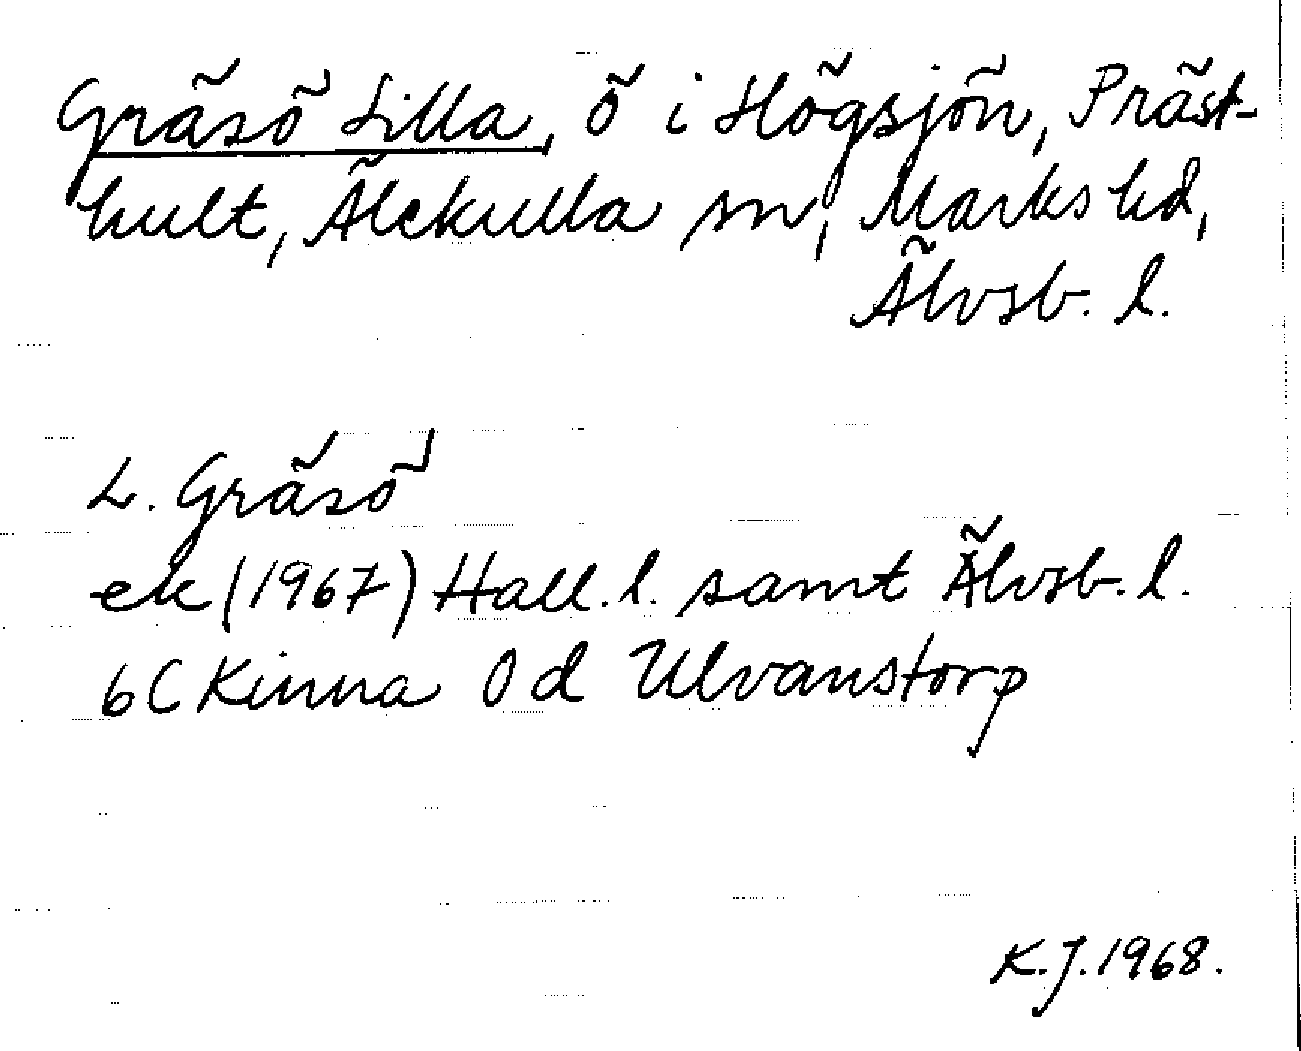 Gräsö Lilla, ö i Högsjön, Präst-
hult, Älekulla sn, Marks hd,
Älvsb. l.
L. Gräsö
ek (1967) Hall. l. samt Älvsb. l.
6C Kinna 0d Ulvanstorp
K.J. 1968.